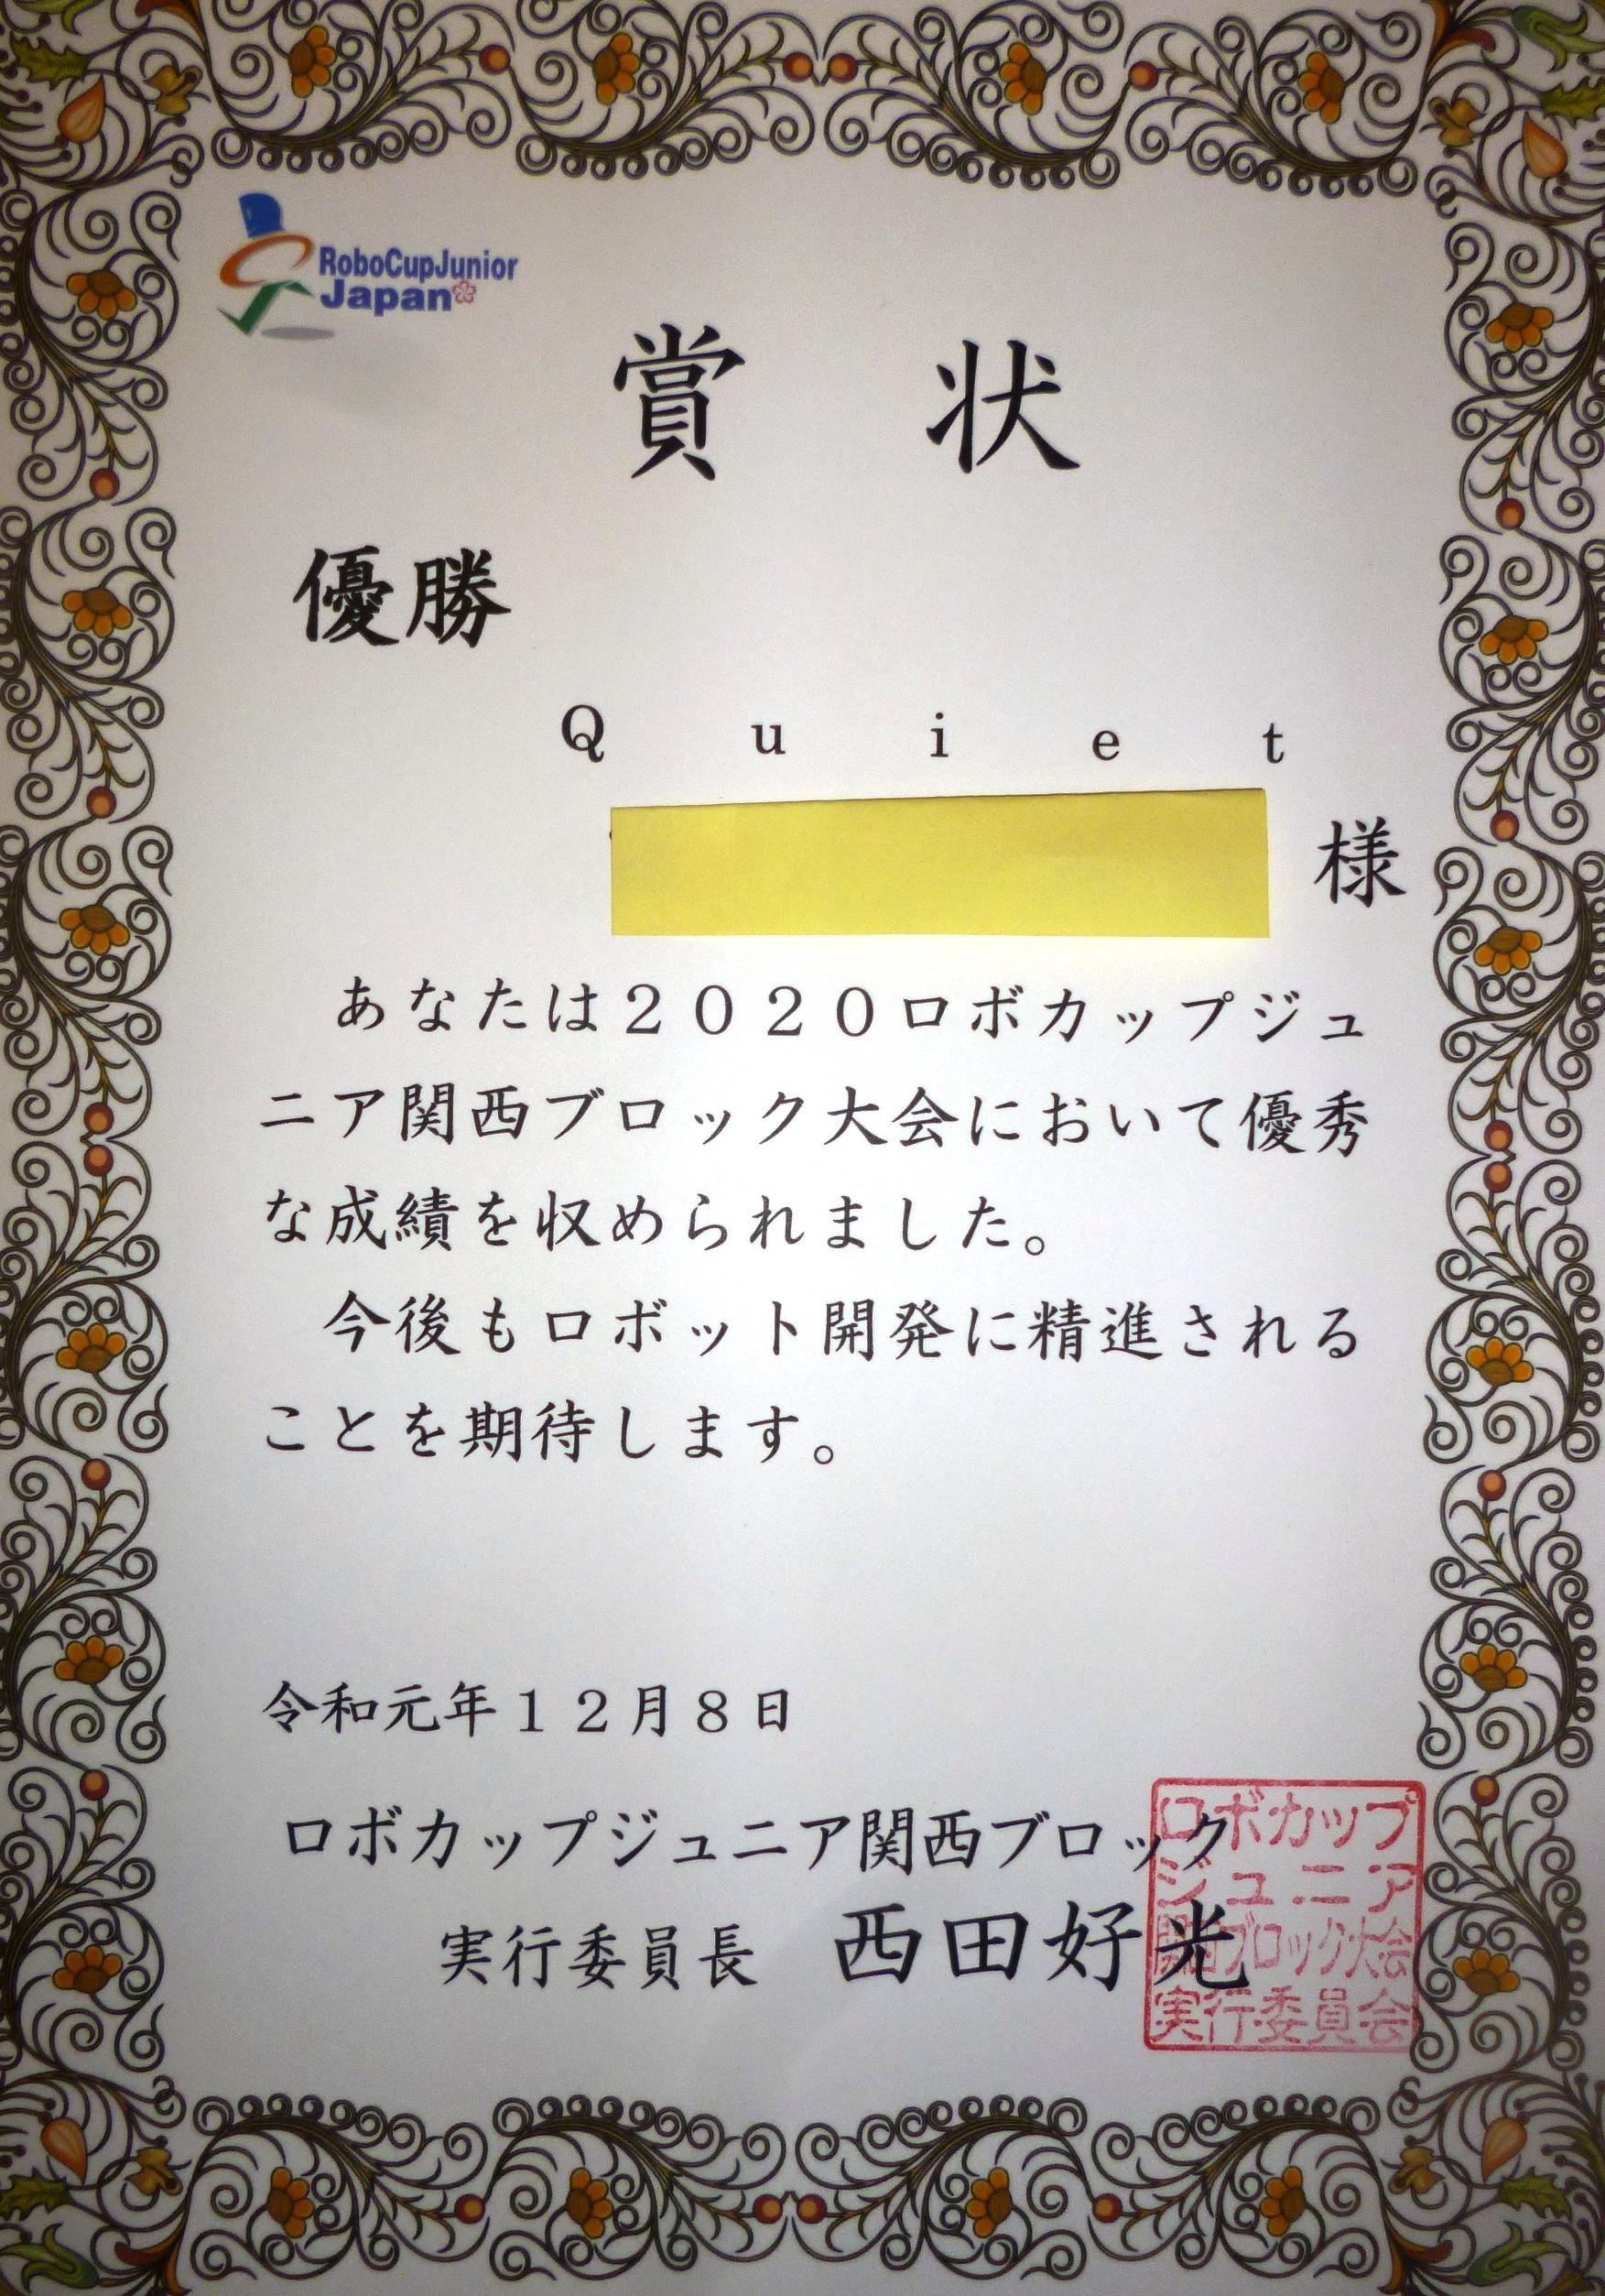 RoboCupJunior
Japan
賞状
優勝
Quiet
様
あなたは2020ロボカップジュ
ニア関西ブロック大会において優秀
な成績を収められました。
今後もロボット開発に精進される
ことを期待します。
令和元年12月8日
ロボカップジュニア関西ブロック
実行委員長 西田好光
ロボカップ
ジュニア
関西ブロック大会
実行委員会